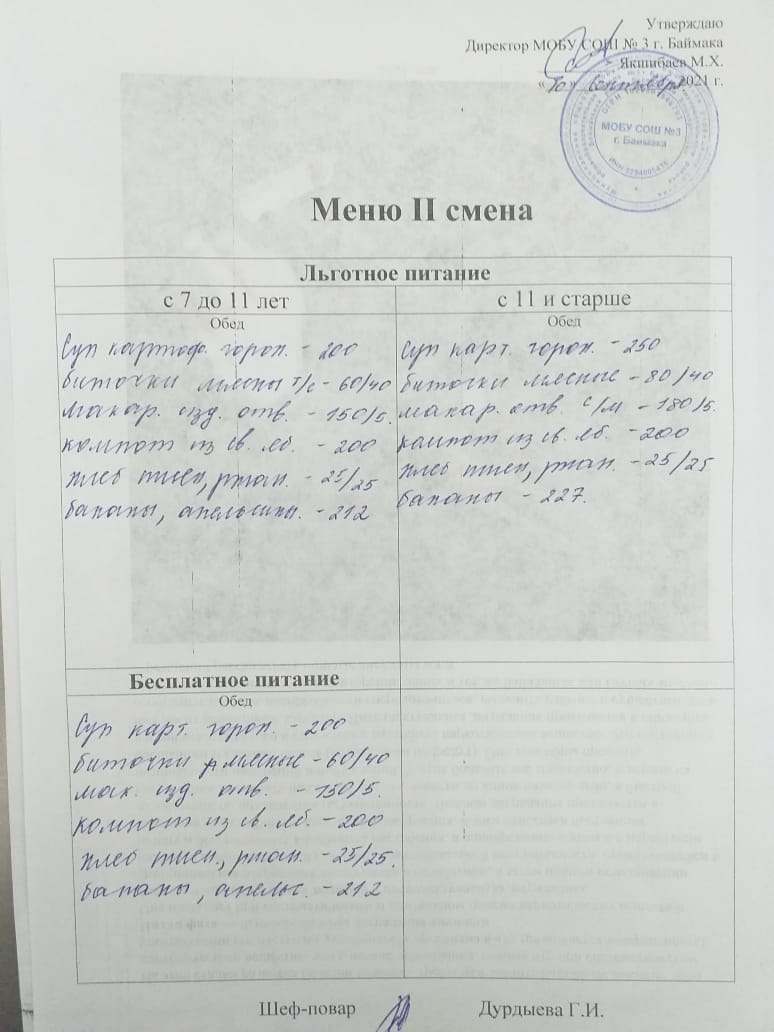 Утверждаю
Директор МОБУ СОШ № 3 г. Баймака
Якшибаев М.Х.
«10» сентября 2021 г.
МОБУ СОШ №3
г. Баймака
Меню II смена
Льготное питание
с 7 до 11 лет
Обед
Суп картоф. горох. - 200
биточки мясны т/с - 60/40
макар. изд. отв. - 150/5.
компот из св. яб. - 200
хлеб пшен, ржан. - 25/25
бананы, апельсины. - 212
с 11 и старше
Обед
Суп карт. горох. - 250
биточки мясные - 80/40
макар. отв. с/м - 180/5.
компот из св. яб. - 200
хлеб пшен, ржан. - 25/25
бананы - 227.
Бесплатное питание
Обед
Суп карт. горох. - 200
биточки мясные - 60/40
мак. изд. отв. - 150/5.
компот из св. яб. - 200
хлеб пшен., ржан. - 25/25.
бананы, апельс. - 212
Шеф-повар Дурдыева Г.И.